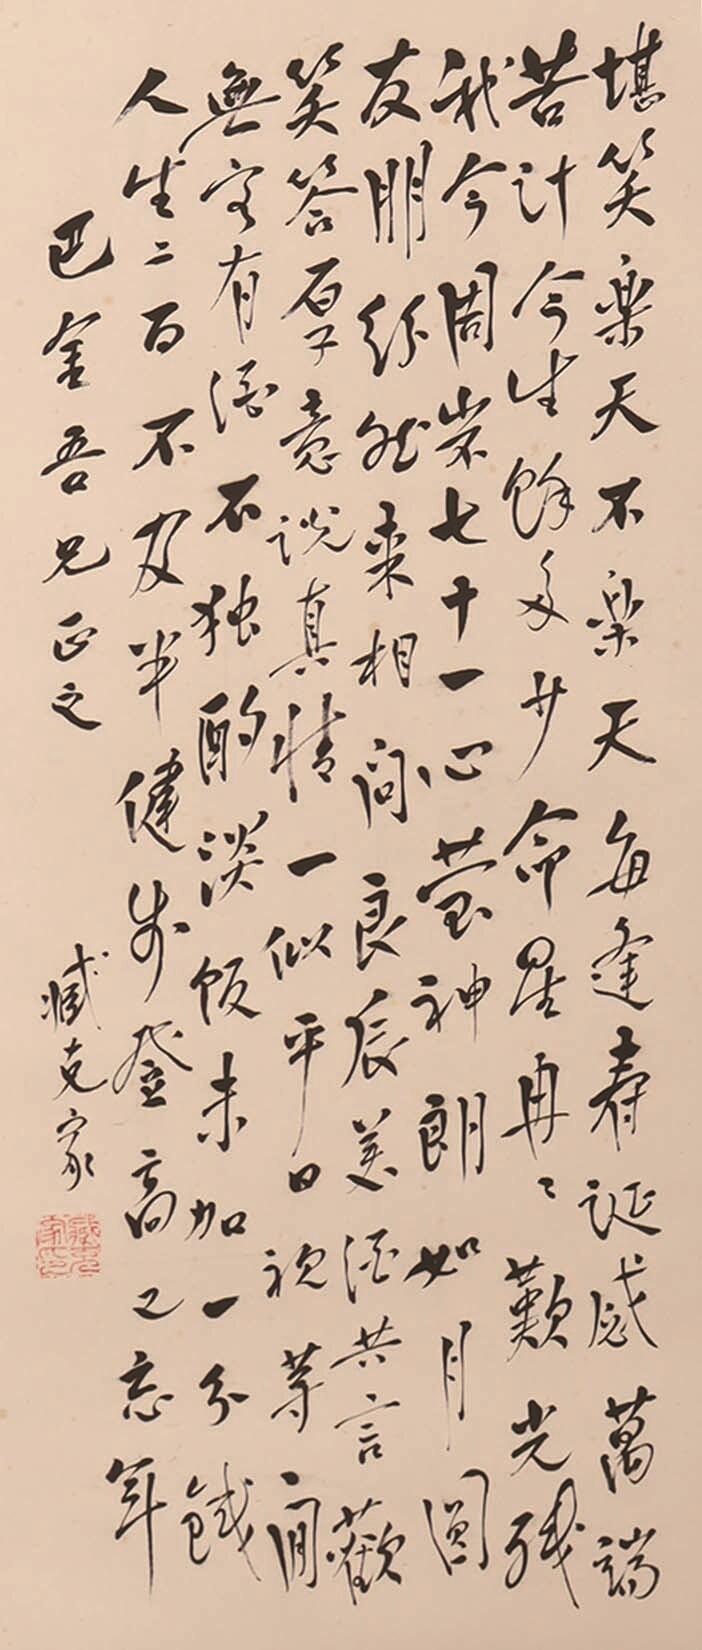 堪笑樂天不樂天每逢寿誕感萬端
苦计今生餘多少命星冉冉歎光残
我今周岁七十一心莹神朗如月圆
友朋紛然来相问良辰美酒共言歡
笑答厚意说真情一似平日视等闲
無客有酒不独酌淡饭未加一分錢
人生二百不及半健步登高又忘年
巴金吾兄正之
臧克家
臧克家印